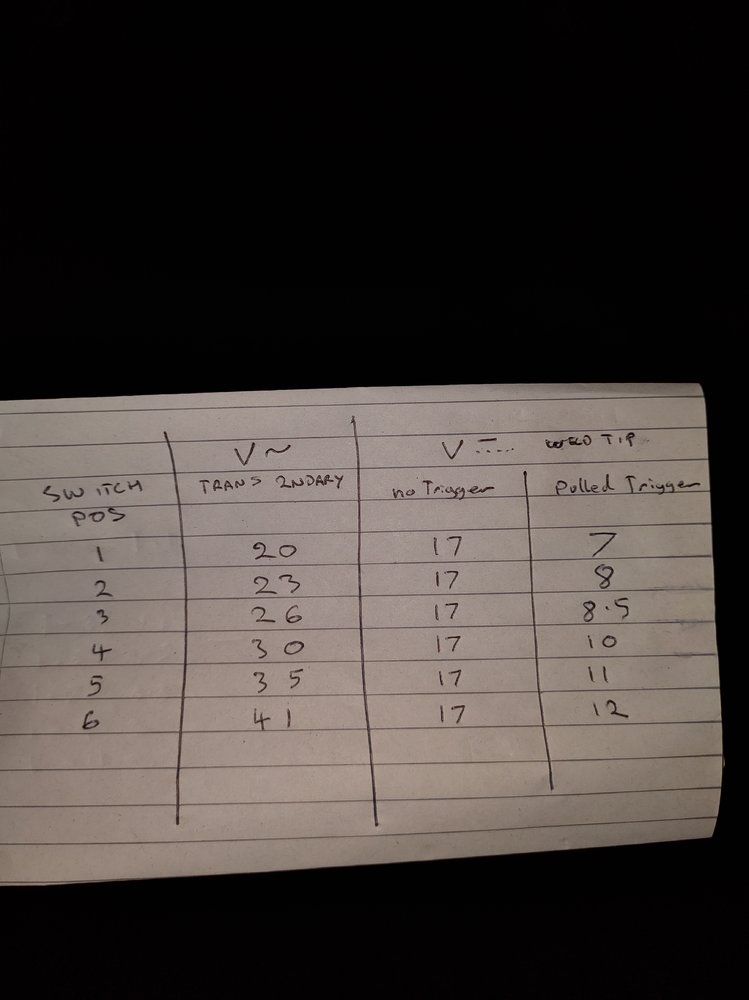 V~ V ⎓ WELD TIP
SWITCH POS TRANS 2NDARY no Trigger Pulled Trigger
1 20 17 7
2 23 17 8
3 26 17 8.5
4 30 17 10
5 35 17 11
6 41 17 12